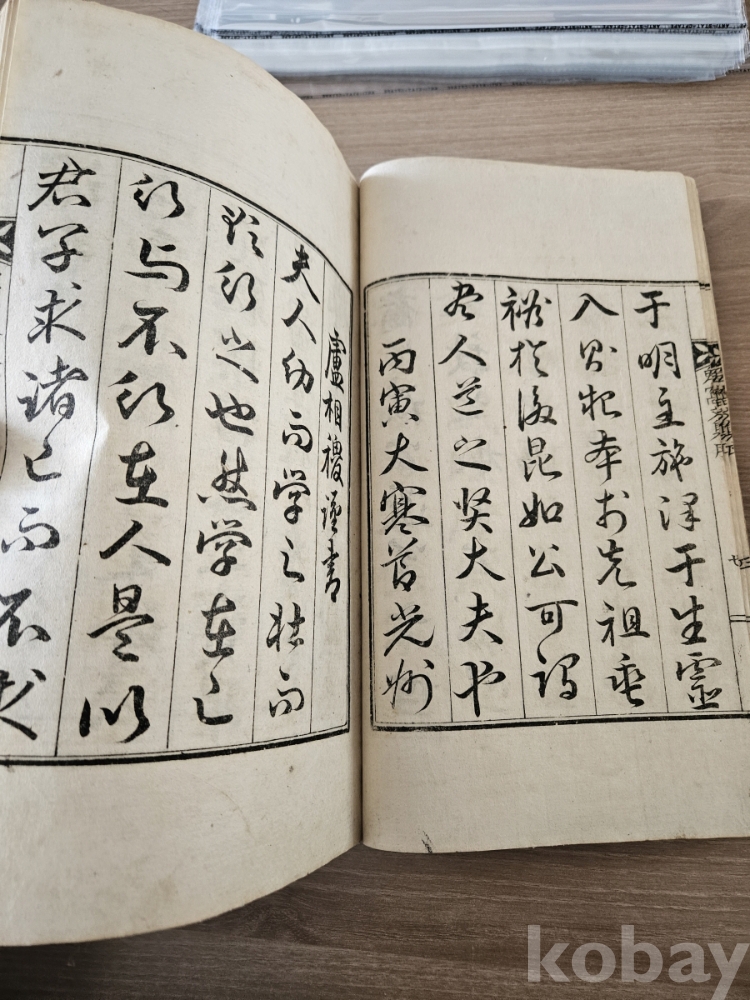 于明主施澤于生靈
入則祀奉於先祖垂
裕於後昆如公可謂
老人道之賢大夫也
丙寅大寒首光州
盧相稷謹書
夫人幼而學之壯而
欲行之也然學在己
行与不行在人是以
君子求諸己而不求
kobay